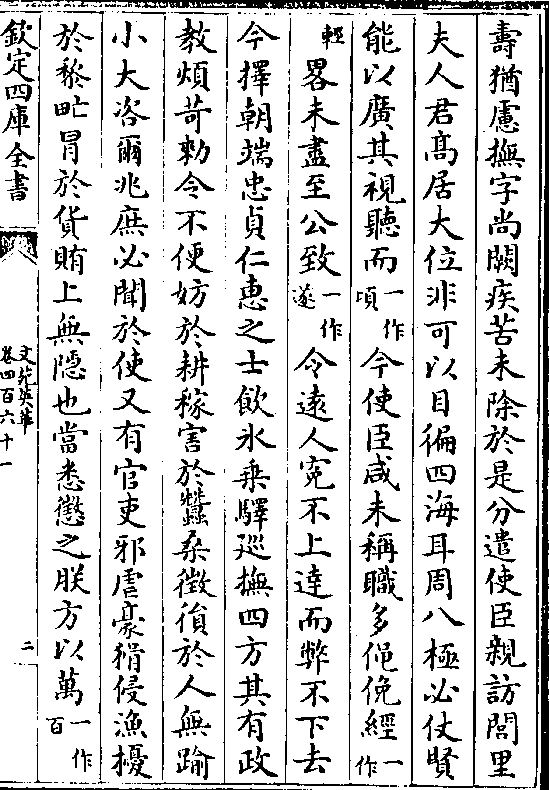 壽猶慮撫字尚闕疾苦未除於是分遣使臣親訪閭里
夫人君髙居大位非可以目徧四海耳周八極必仗賢
能以廣其視聽而一作頃今使臣咸未稱職多僶俛經一作
輕畧未盡至公致一作遂令遠人寃不上達而弊不下去
今擇朝端忠貞仁惠之士飲氷乗驛廵撫四方其有政
教煩苛勅令不便妨於耕稼害於蠶桑徴徭於人無踰
小大咨爾兆庶必聞於使又有官吏邪虐豪猾侵漁擾
於黎甿冒於貨賄上無隠也當悉懲之朕方以萬一作百
欽定四庫全書
文苑英華
卷四百六十一
二